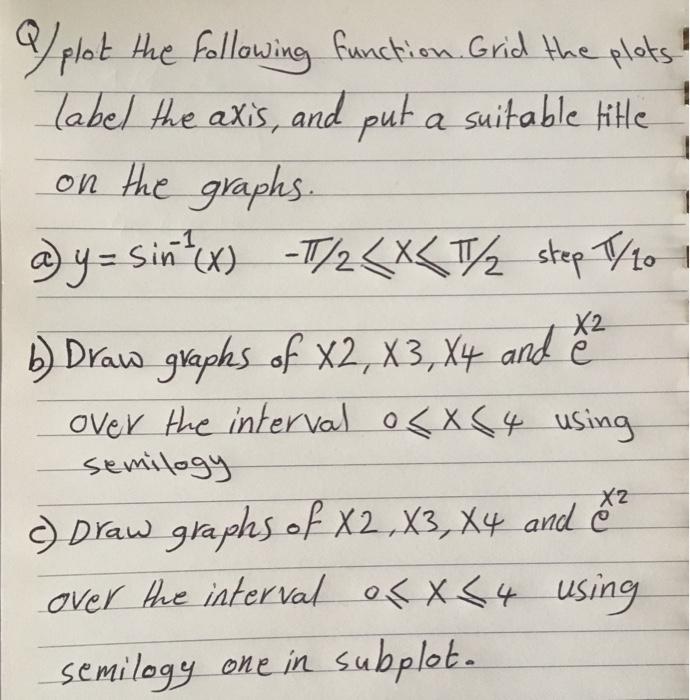 Q/ plot the following function. Grid the plots
label the axis, and put a suitable title
on the graphs.
a) y = sin⁻¹(x) -π/2 ≤ x ≤ π/2 step π/10
b) Draw graphs of X2, X3, X4 and e^X2
over the interval 0 ≤ X ≤ 4 using
semilogy
c) Draw graphs of X2, X3, X4 and e^X2
over the interval 0 ≤ X ≤ 4 using
semilogy one in subplot.